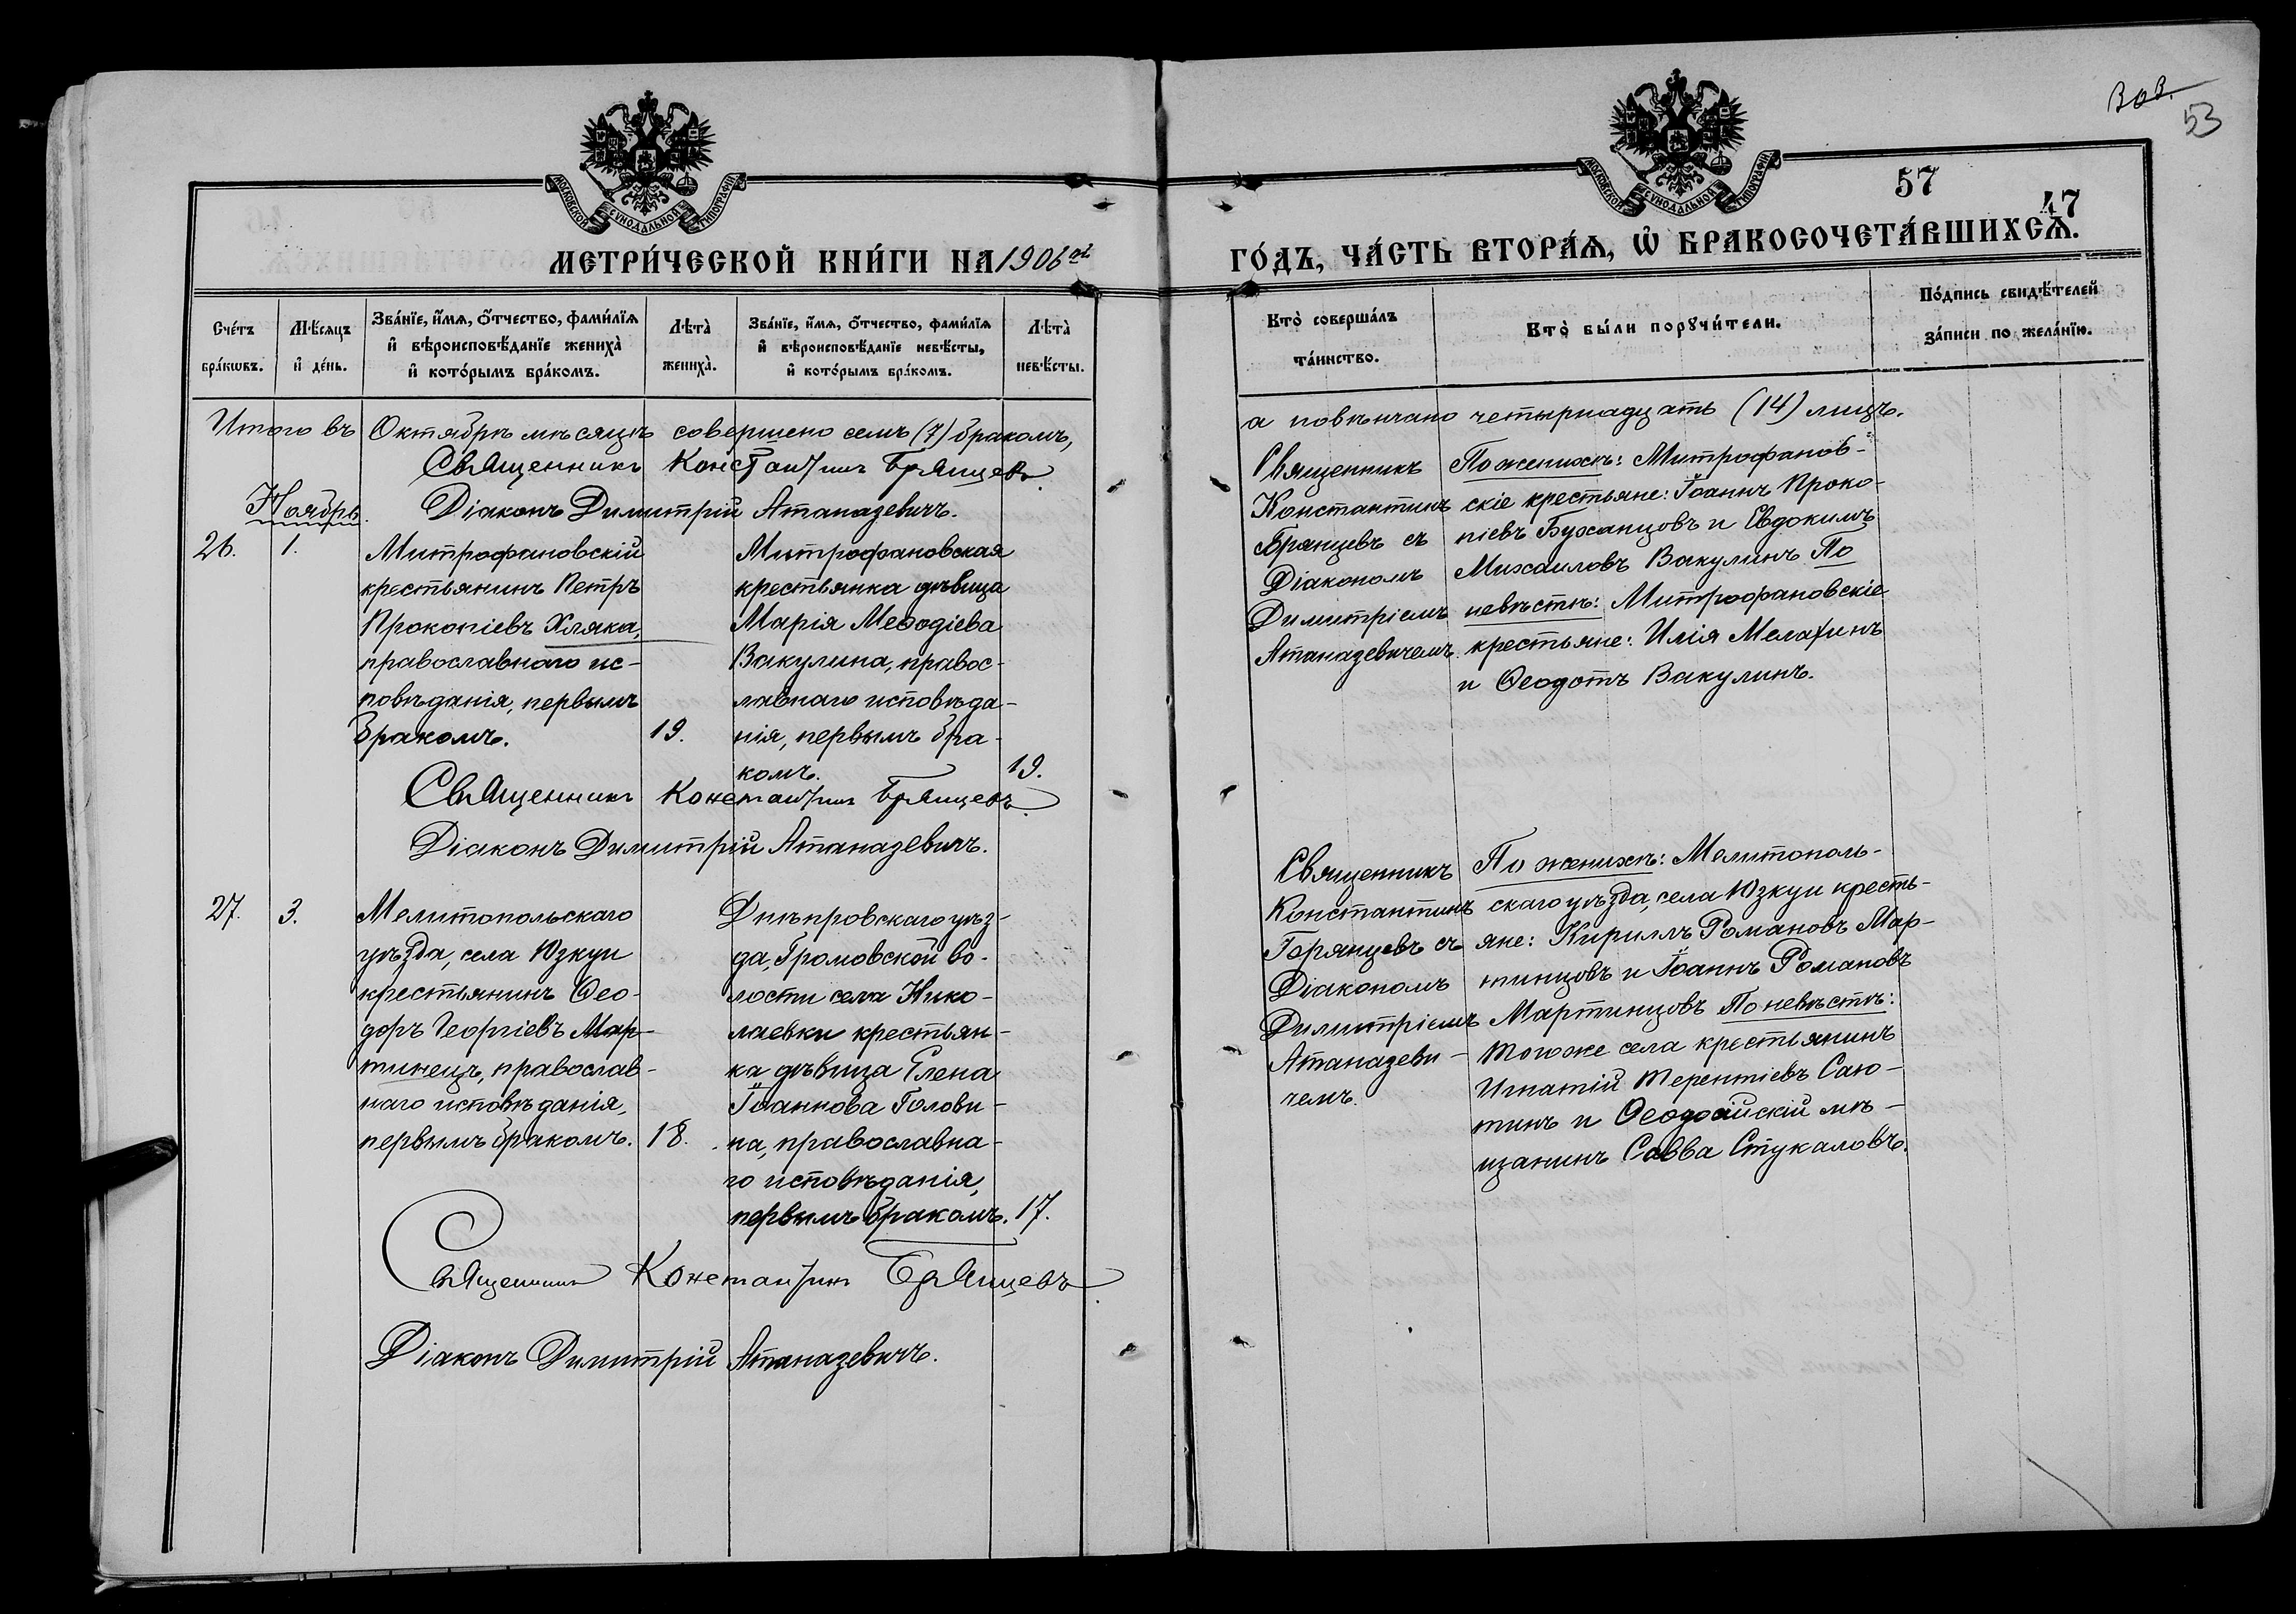 Вов.
53
57
47
МОСКОВСКОЙ СѴНОДАЛЬНОЙ ТИПОГРАФІИ
МОСКОВСКОЙ СѴНОДАЛЬНОЙ ТИПОГРАФІИ
МЕТРИ́ЧЕСКОЙ КНИ́ГИ НА 1906й
ГО́ДЪ, ЧА́СТЬ ВТОРА́Ѧ, Ѽ БРАКОСОЧЕТА́ВШИХСѦ.
Сче́тъ
бра́кѡвъ.
Мѣ́сяцъ
и҆ де́нь.
Зва́нїе, и҆́мѧ, ѻ҆́тчество, фами́лїѧ
и҆ вѣроисповѣ́данїе жениха̀
и҆ кото́рымъ бра́комъ.
Лѣта̀
жениха̀.
Зва́нїе, и҆́мѧ, ѻ҆́тчество, фами́лїѧ
и҆ вѣроисповѣ́данїе невѣ́сты,
и҆ кото́рымъ бра́комъ.
Лѣта̀
невѣ́сты.
Кто̀ соверша́лъ
та́инство.
Кто̀ бы́ли порꙋчи́тели.
По́дпись свидѣ́телей
за́писи по жела́нїю.
Итого въ Октябрѣ мѣсяцѣ совершено семь (7) браковъ,
а повѣнчано четырнадцать (14) лицъ.
Священникъ Константинъ Брянцевъ
Ноябрь.
Діаконъ Димитрій Атаназевичъ.
26.
1.
Митрофановскій
крестьянинъ Петръ
Прокопіевъ Хляка,
православнаго ис-
повѣданія, первымъ
бракомъ.
19.
Митрофановская
крестьянка дѣвица
Марія Меѳодіева
Вакулина, правос-
лавнаго исповѣда-
нія, первымъ бра-
комъ.
19.
Священникъ
Константинъ
Брянцевъ съ
Діакономъ
Димитріемъ
Атаназевичемъ.
По женихѣ: Митрофанов-
скіе крестьяне: Іоаннъ Проко-
піевъ Буханцовъ и Евдокимъ
Михаиловъ Вакулинъ По
невѣстѣ: Митрофановскіе
крестьяне: Илія Мелахинъ
и Ѳеодотъ Вакулинъ.
Священникъ Константинъ Брянцевъ
Діаконъ Димитрій Атаназевичъ.
27.
3.
Мелитопольскаго
уѣзда, села Юзкуи
крестьянинъ Ѳео-
доръ Георгіевъ Мар-
тинецъ, православ-
наго исповѣданія,
первымъ бракомъ.
18.
Днѣпровскаго уѣз-
да, Громовской во-
лости села Нико-
лаевки крестьян-
ка дѣвица Елена
Іоаннова Голови-
на, православна-
го исповѣданія,
первымъ бракомъ.
17.
Священникъ
Константинъ
Брянцевъ съ
Діакономъ
Димитріемъ
Атаназеви-
чемъ.
По женихѣ: Мелитополь-
скаго уѣзда, села Юзкуи кресть-
яне: Кириллъ Романовъ Мар-
тинцовъ и Іоаннъ Романовъ
Мартинцовъ По невѣстѣ:
того же села крестьянинъ
Игнатій Терентіевъ Саю-
тинъ и Ѳеодосійскій мѣ-
щанинъ Савва Стукаловъ.
Священникъ Константинъ Брянцевъ
Діаконъ Димитрій Атаназевичъ.